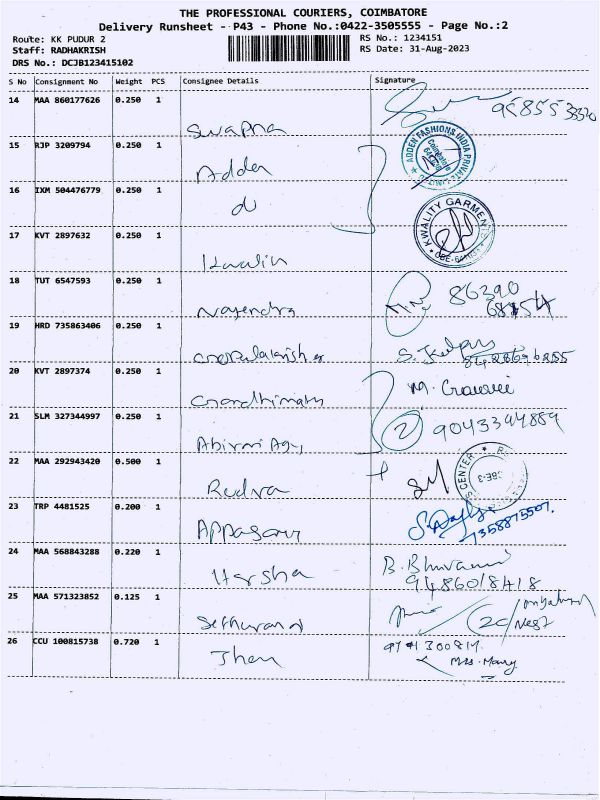 THE PROFESSIONAL COURIERS, COIMBATORE
Delivery Runsheet - P43 - Phone No.:0422-3505555 - Page No.:2
Route: KK PUDUR 2
RS No.: 1234151
Staff: RADHAKRISH
RS Date: 31-Aug-2023
DRS No.: DCJB123415102
S No Consignment No Weight PCS Consignee Details Signature
14 MAA 860177626 0.250 1
Swapna
15 RJP 3209794 0.250 1
Adden
ADDEN FASHIONS INDIA PRIVATE
Coimbatore
16 IXM 504476779 0.250 1
d
KWALITY GARMENTS
17 KVT 2897632 0.250 1
18 TUT 6547593 0.250 1
Nagendra
86390
19 HRD 735863406 0.250 1
20 KVT 2897374 0.250 1
Gandhimathi
21 SLM 327344997 0.250 1
Abirami Agy
2
9043394889
22 MAA 292943420 0.500 1
Rudra
S CENTER
23 TRP 4481525 0.200 1
Appasamy
7358875507.
24 MAA 568843288 0.220 1
Harsha
B. Bhuvana
9486018418
25 MAA 571323852 0.125 1
26 CCU 100815738 0.720 1
Jhan
Mrs. Mary